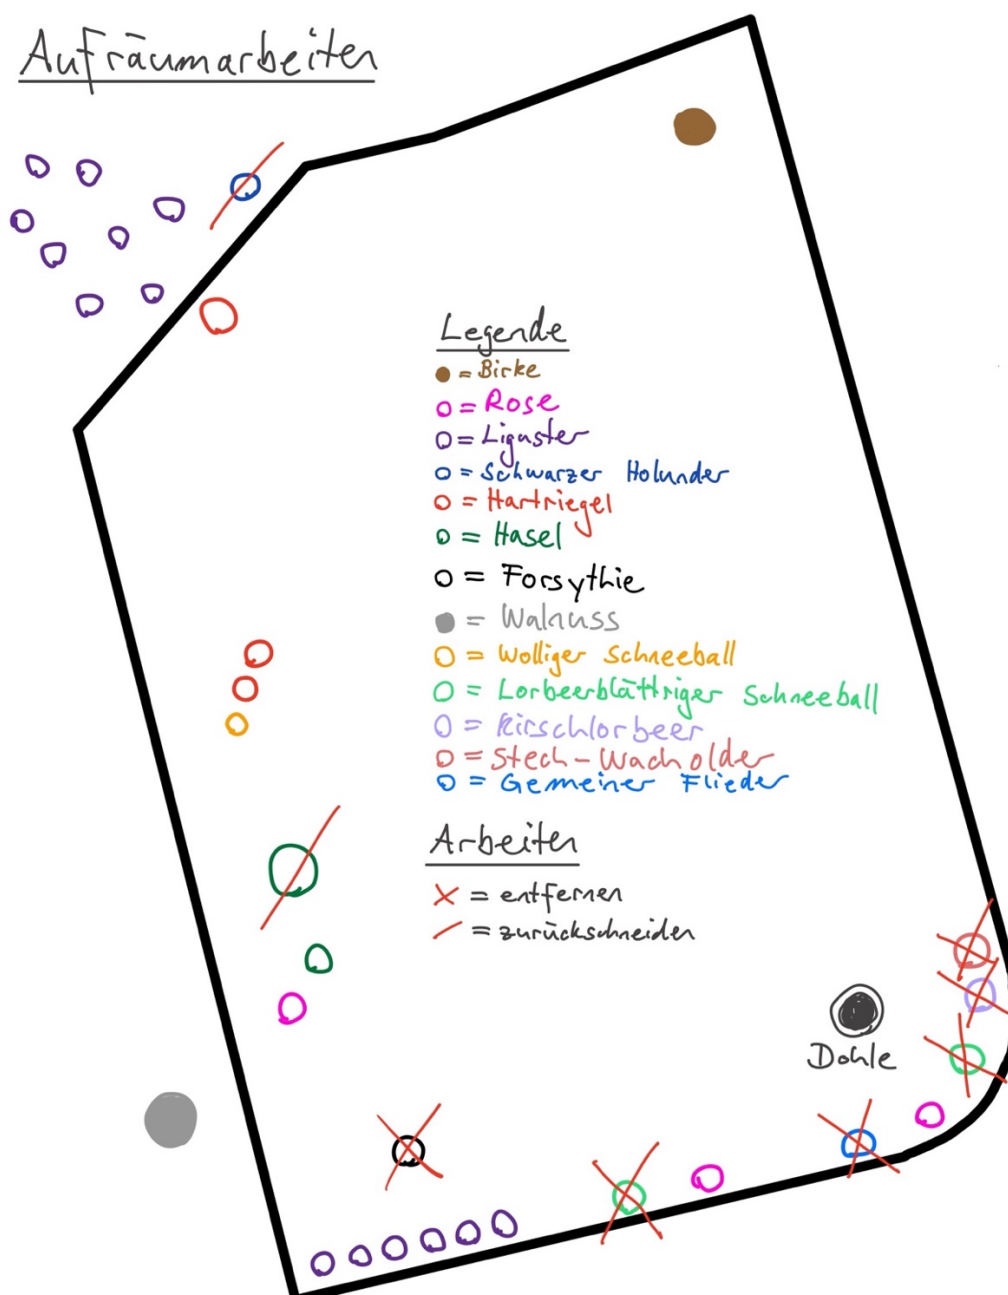 Aufräumarbeiten
Legende
= Birke
= Rose
= Liguster
= Schwarzer Holunder
= Hartriegel
= Hasel
= Forsythie
= Walnuss
= Wolliger Schneeball
= Lorbeerblättriger Schneeball
= Kirschlorbeer
= Stech-Wacholder
= Gemeiner Flieder
Arbeiten
= entfernen
= zurückschneiden
Dohle